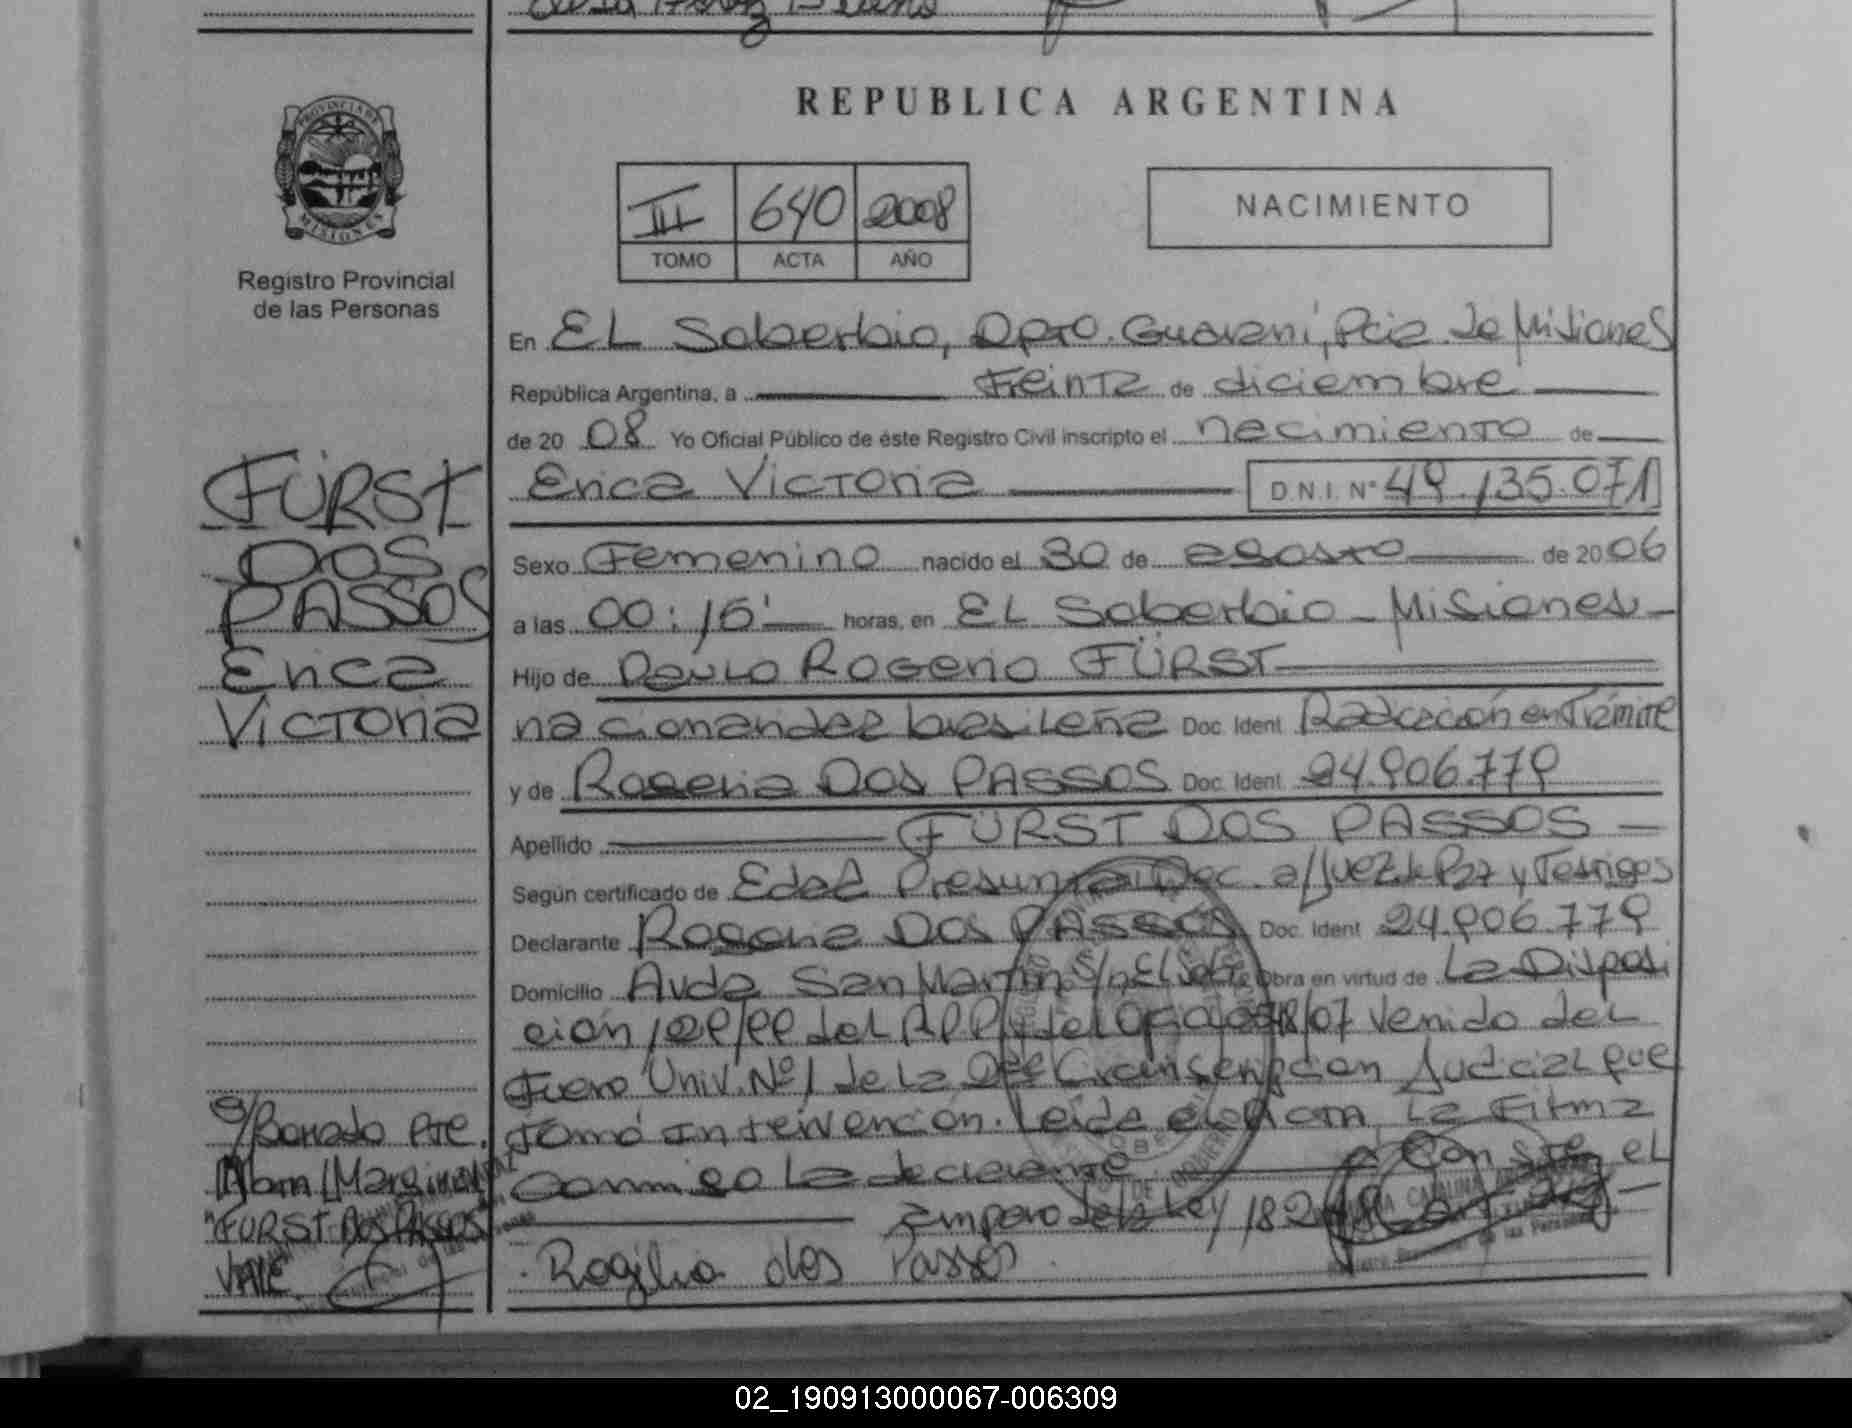 REPUBLICA ARGENTINA
PROVINCIA DE
MISIONES
Registro Provincial
de las Personas
III 640 2008
TOMO ACTA AÑO
NACIMIENTO
En EL Soberbio, Dpto. Guaraní, Pcia. de Misiones
República Argentina, a treinta de diciembre
de 20 08 Yo Oficial Público de éste Registro Civil inscripto el nacimiento de
Erica Victoria D.N.I. Nº 49.135.071
Sexo Femenino nacido el 30 de agosto de 2006
a las 00:15' horas, en EL Soberbio - Misiones
Hijo de Paulo Rogerio FÜRST
nacionalidad brasileña Doc. Ident. Radicación en Trámite
y de Rogeria DOS PASSOS Doc. Ident. 24.906.779
Apellido FÜRST DOS PASSOS
Según certificado de Edad Presunta Doc. a/Juez de Paz y Testigos
Declarante DOS PASSOS Doc. Ident 24.906.779
Domicilio Avda San Martín S/n EL Sob. Obra en virtud de La Disposi
ción 129/99 del RPP y del Oficio 07 Venido del
Fuero Univ. Nº 1 de La 2da Circunscripcion Judicial que
tomó intervención. Leida el acta, La Firma
conmigo La declarante Conste el
amparo de la Ley 18.248
Rogilia dos Passos
FÜRST
DOS
PASSOS
Erica
Victoria
s/Borrado Pte.
Nom/Marginal
"FÜRST DOS PASSOS"
VALE.
02_190913000067-006309